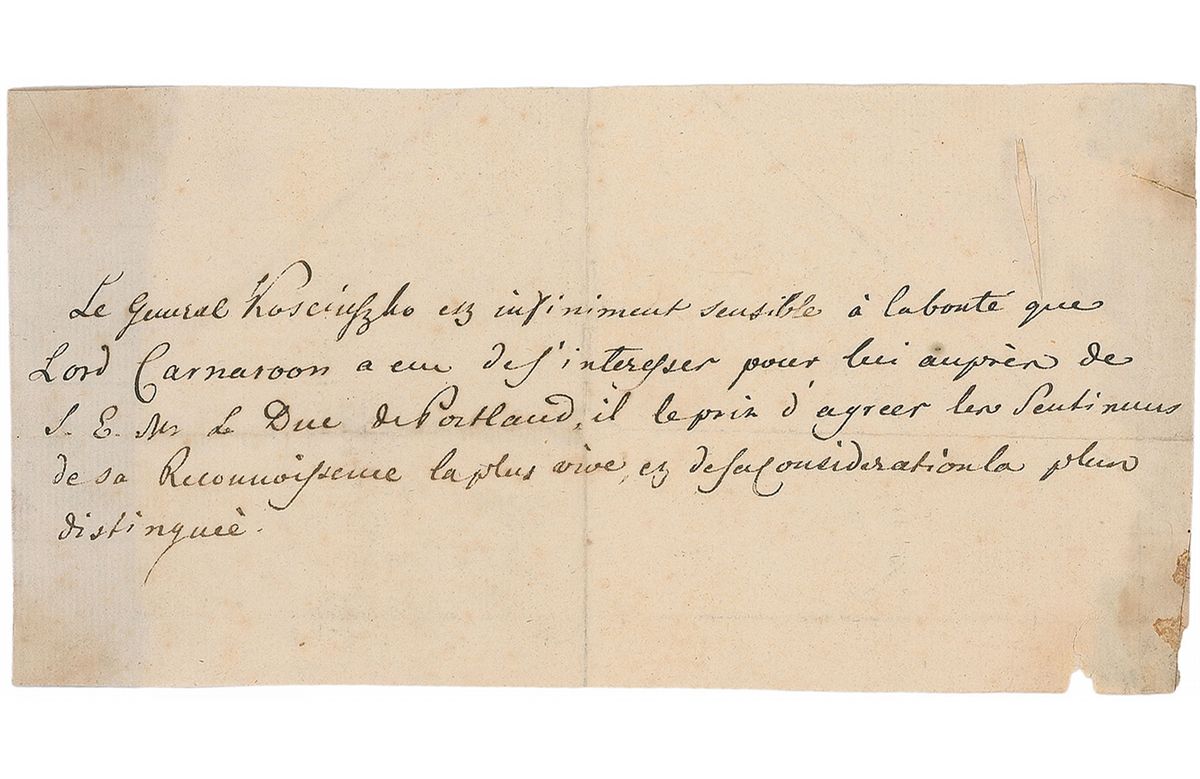 Le General Kosciuszko est infiniment sensible à la bonté que
Lord Carnaroon a eue de s'interesser pour lui auprès de
S. E. Mr Le Duc de Portland, il le prie d'agreer les Sentimens
de sa Reconnoissence la plus vive, et de sa Consideration la plus
distinguéè.